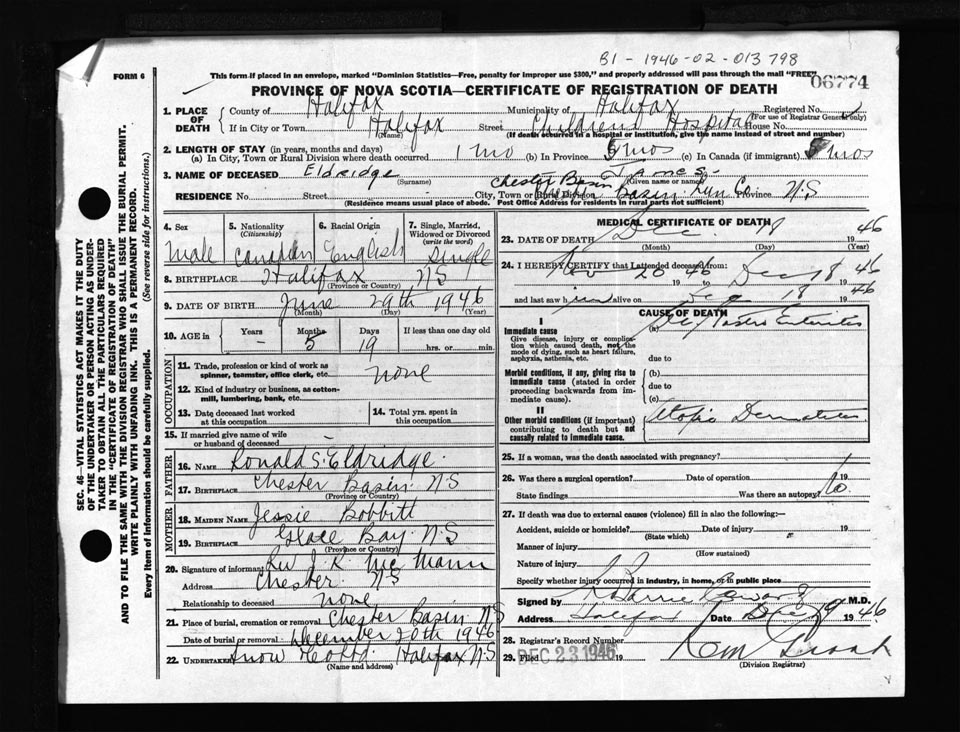 B1 - 1946-02-013798
FORM 6
This form if placed in an envelope, marked "Dominion Statistics—Free, penalty for improper use $300," and properly addressed will pass through the mail "FREE"
06774
PROVINCE OF NOVA SCOTIA—CERTIFICATE OF REGISTRATION OF DEATH
1. PLACE OF DEATH
County of Halifax Municipality of Halifax Registered No.
(For use of Registrar General only)
If in City or Town Halifax Street Childrens Hospital House No.
(Name) (If death occurred in a hospital or institution, give the name instead of street and number)
2. LENGTH OF STAY (in years, months and days)
(a) In City, Town or Rural Division where death occurred 1 mo (b) In Province 5 mos (c) In Canada (if immigrant) 5 mos
3. NAME OF DECEASED Eldridge James
(Surname) (Given name or names)
Chester Basin
RESIDENCE No. Street City, Town or Rural Division Basin Lun Co. Province N.S
(Residence means usual place of abode. Post Office Address for residents in rural parts not sufficient)
4. Sex
male
5. Nationality (Citizenship)
Canadian
6. Racial Origin
English
7. Single, Married, Widowed or Divorced (write the word)
Single
8. BIRTHPLACE Halifax NS
(Province or Country)
9. DATE OF BIRTH June 29th 1946
(Month) (Day) (Year)
10. AGE in Years - Months 5 Days 19 If less than one day old
hrs. or min.
OCCUPATION
11. Trade, profession or kind of work as spinner, teamster, office clerk, etc. none
12. Kind of industry or business, as cotton-mill, lumbering, bank, etc.
13. Date deceased last worked at this occupation
14. Total yrs. spent in this occupation
15. If married give name of wife or husband of deceased -
FATHER
16. NAME Ronald S. Eldridge
17. BIRTHPLACE Chester Basin N.S
(Province or Country)
MOTHER
18. MAIDEN NAME Jessie Bobbitt
19. BIRTHPLACE Glace Bay N.S
(Province or Country)
20. Signature of informant Rev J. K. McMann
Address Chester NS
Relationship to deceased none
21. Place of burial, cremation or removal Chester Basin NS
Date of burial or removal December 20th 1946
22. UNDERTAKER Snow & Co Ltd Halifax N.S
(Name and address)
MEDICAL CERTIFICATE OF DEATH
23. DATE OF DEATH Dec. 18 1946
(Month) (Day) (Year)
24. I HEREBY CERTIFY that I attended deceased from:
20 1946 to Dec 18 1946
and last saw him alive on Dec 18 1946
CAUSE OF DEATH
I
Immediate cause
Give disease, injury or complication which caused death, not the mode of dying, such as heart failure, asphyxia, asthenia, etc.
(a) Gastro Enteritis
due to
Morbid conditions, if any, giving rise to immediate cause (stated in order proceeding backwards from immediate cause).
(b)
due to
(c)
II
Other morbid conditions (if important) contributing to death but not causally related to immediate cause.
Atopic Dermatitis
25. If a woman, was the death associated with pregnancy?
26. Was there a surgical operation? Date of operation 19
State findings Was there an autopsy? No
27. If death was due to external causes (violence) fill in also the following:—
Accident, suicide or homicide? Date of injury 19
(State which)
Manner of injury
(How sustained)
Nature of injury
Specify whether injury occurred in industry, in home, or in public place
Signed by Barrie Coward M.D.
Halifax Date Dec 19 1946
28. Registrar's Record Number
29. Filed DEC 23 1946 19
(Division Registrar)
SEC. 46—VITAL STATISTICS ACT MAKES IT THE DUTY
OF THE UNDERTAKER OR PERSON ACTING AS UNDER-
TAKER TO OBTAIN ALL THE PARTICULARS REQUIRED
IN THE "CERTIFICATE OF REGISTRATION OF DEATH"
AND TO FILE THE SAME WITH THE DIVISION REGISTRAR WHO SHALL ISSUE THE BURIAL PERMIT.
WRITE PLAINLY WITH UNFADING INK. THIS IS A PERMANENT RECORD.
Every item of information should be carefully supplied. (See reverse side for instructions.)